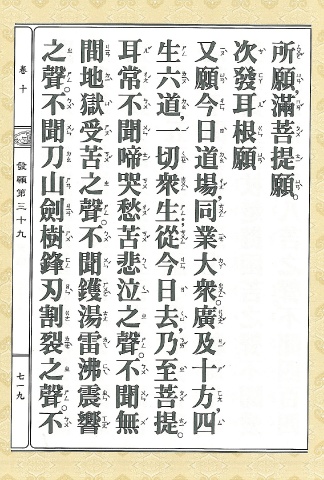 所願,滿菩提願。
次發耳根願
又願今日道場,同業大衆。廣及十方,四
生六道,一切衆生,從今日去,乃至菩提。
耳常不聞啼哭愁苦悲泣之聲。不聞無
間地獄受苦之聲。不聞鑊湯雷沸震響
之聲。不聞刀山劍樹鋒刃割裂之聲。不
卷十
發願第三十九
七一九